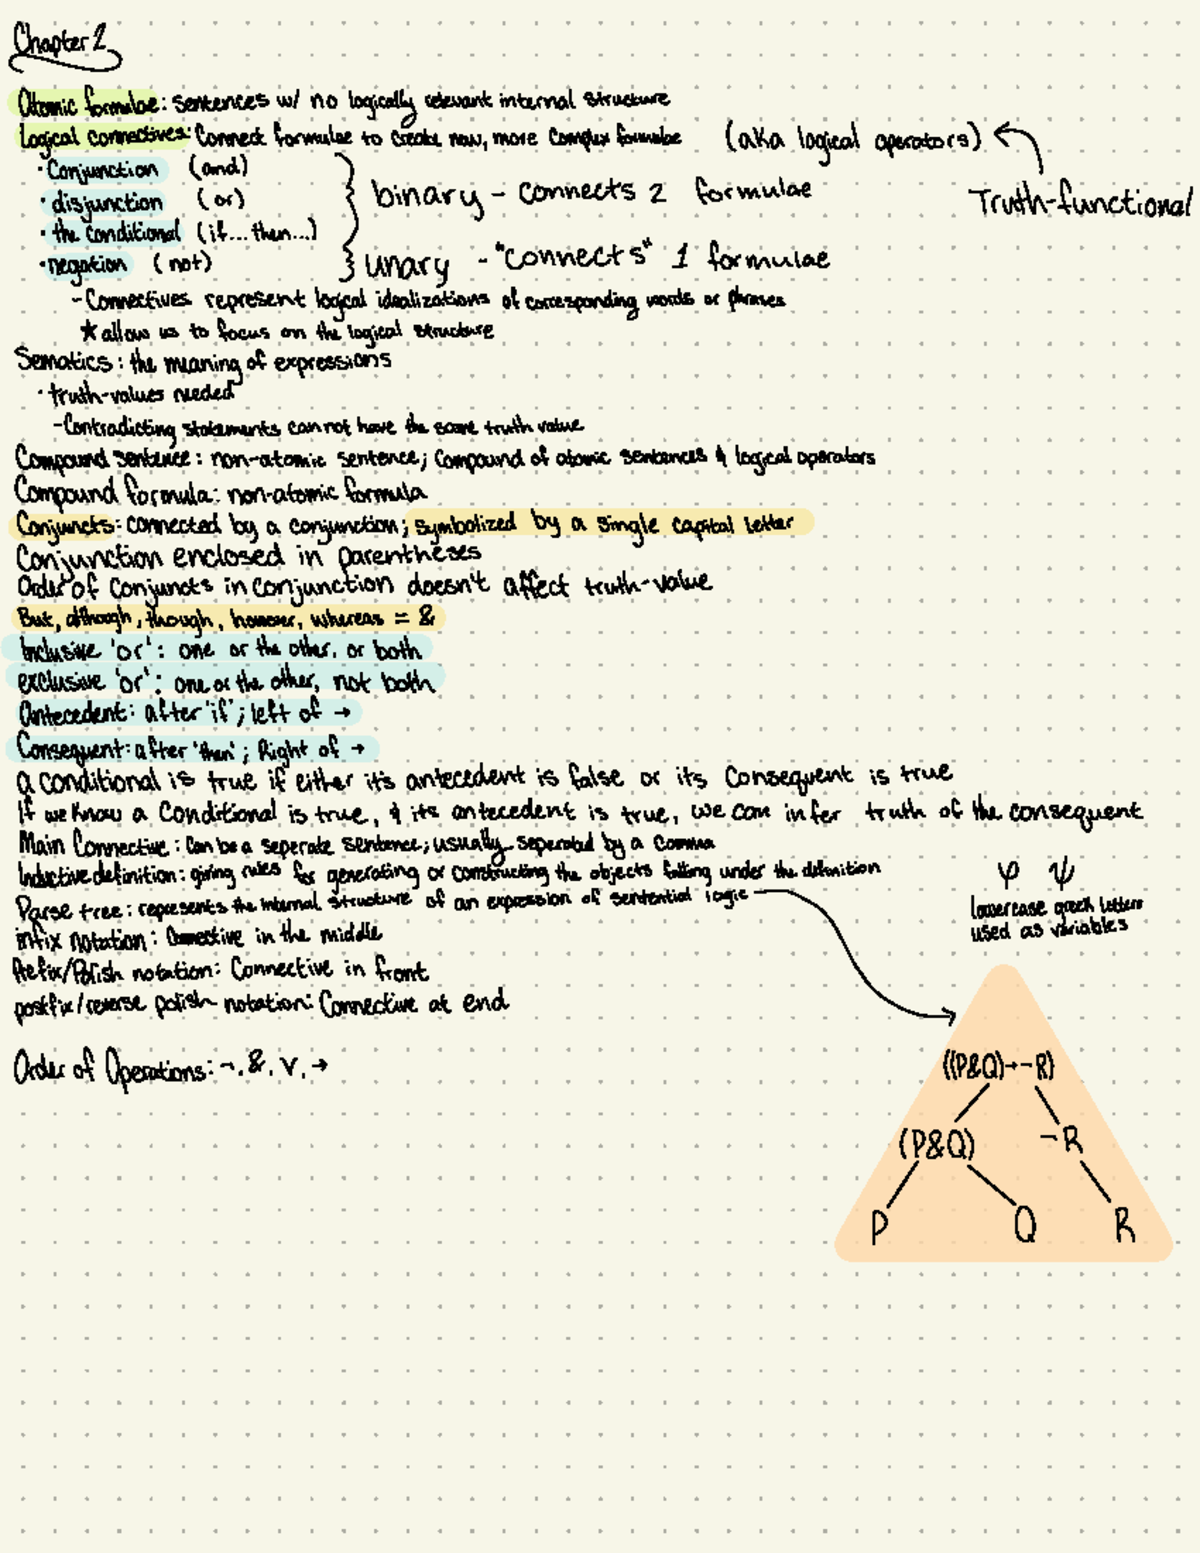 Chapter 2
Atomic formulae: sentences w/ no logically relevant internal structure
Logical connectives: Connect formulae to create new, more complex formulae (aka logical operators)
Truth-functional
· Conjunction (and)
· disjunction (or)
· the conditional (if... then...)
binary - connects 2 formulae
· negation (not)
unary - "connects" 1 formulae
- Connectives represent logical idealizations of corresponding words or phrases
★ allow us to focus on the logical structure
Sematics: the meaning of expressions
· truth-values needed
- Contradicting statements can not have the same truth value
Compound sentence: non-atomic sentence; compound of atomic sentences & logical operators
Compound formula: non-atomic formula
Conjuncts: connected by a conjunction; symbolized by a single capital letter
Conjunction enclosed in parentheses
Order of conjuncts in conjunction doesn't affect truth-value
But, although, though, however, whereas = &
Inclusive 'or': one or the other, or both
exclusive 'or': one or the other, not both
Antecedent: after 'if'; left of →
Consequent: after 'then'; Right of →
a conditional is true if either its antecedent is false or its consequent is true
If we know a conditional is true, & its antecedent is true, we can infer truth of the consequent
Main Connective: Can be a seperate sentence; usually seperated by a comma
Inductive definition: giving rules for generating or constructing the objects falling under the definition
Parse tree: represents the internal structure of an expression of sentential logic
infix notation: Connective in the middle
Prefix/Polish notation: Connective in front
postfix/reverse polish notation: Connective at end
Order of Operations: ¬, &, ∨, →
φ ψ
lowercase greek letters
used as variables
((P&Q)→¬R)
(P&Q) ¬R
P Q R